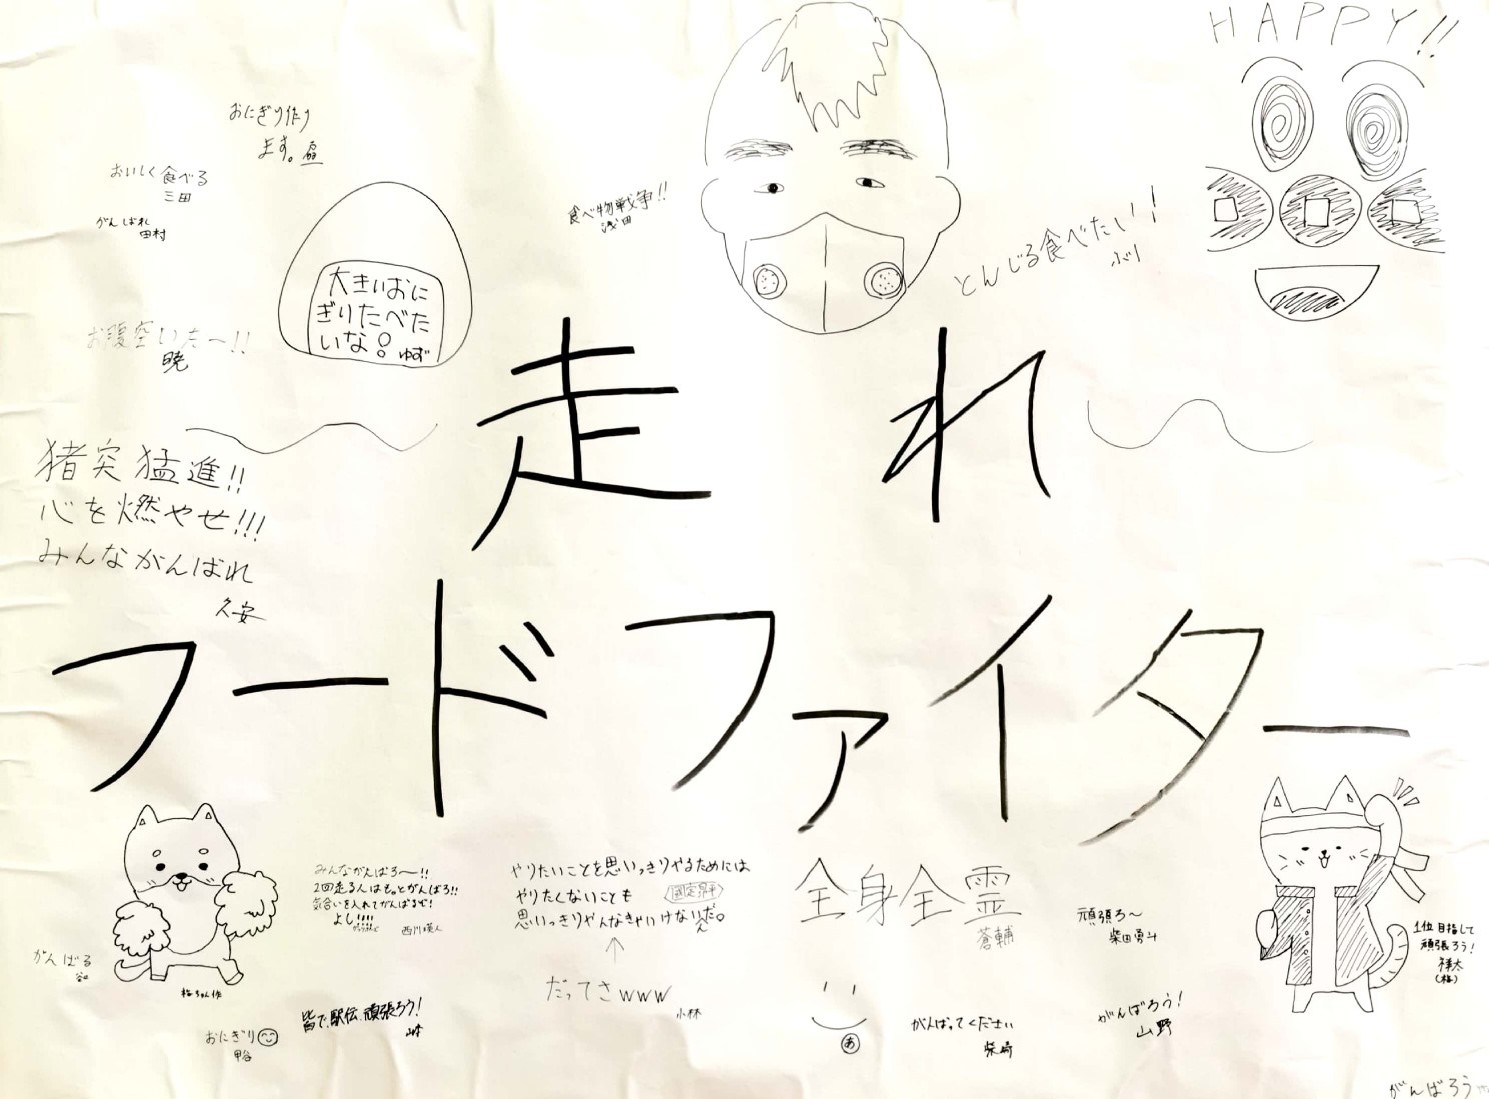 HAPPY!!
おにぎり作り
ます。
おいしく食べる
三田
がんばれ
田村
食べ物戦争!!
浅田
とんじる食べたい!
大きいおに
ぎりたべた
いな!
ゆず
お腹空いた〜!!
暁
走れ
猪突猛進!!
心を燃やせ!!!
みんながんばれ
久安
フードファイター
みんながんばろ〜!!
2回走る人はもっとがんばろ!!
気合いを入れてがんばるぜ!
よし!!!!
西川瑛人
やりたいことを思いっきりやるためには
やりたくないことも
思いっきりやんなきゃいけないんだ。
だってさwww
小林
全身全霊
蒼輔
頑張ろ〜
柴田勇斗
1位目指して
頑張ろう!
がんばる
梅ちゃん作
おにぎり
甲谷
皆で、駅伝、頑張ろう!
あ
がんばってください
柴崎
がんばろう!
山野
がんばろう